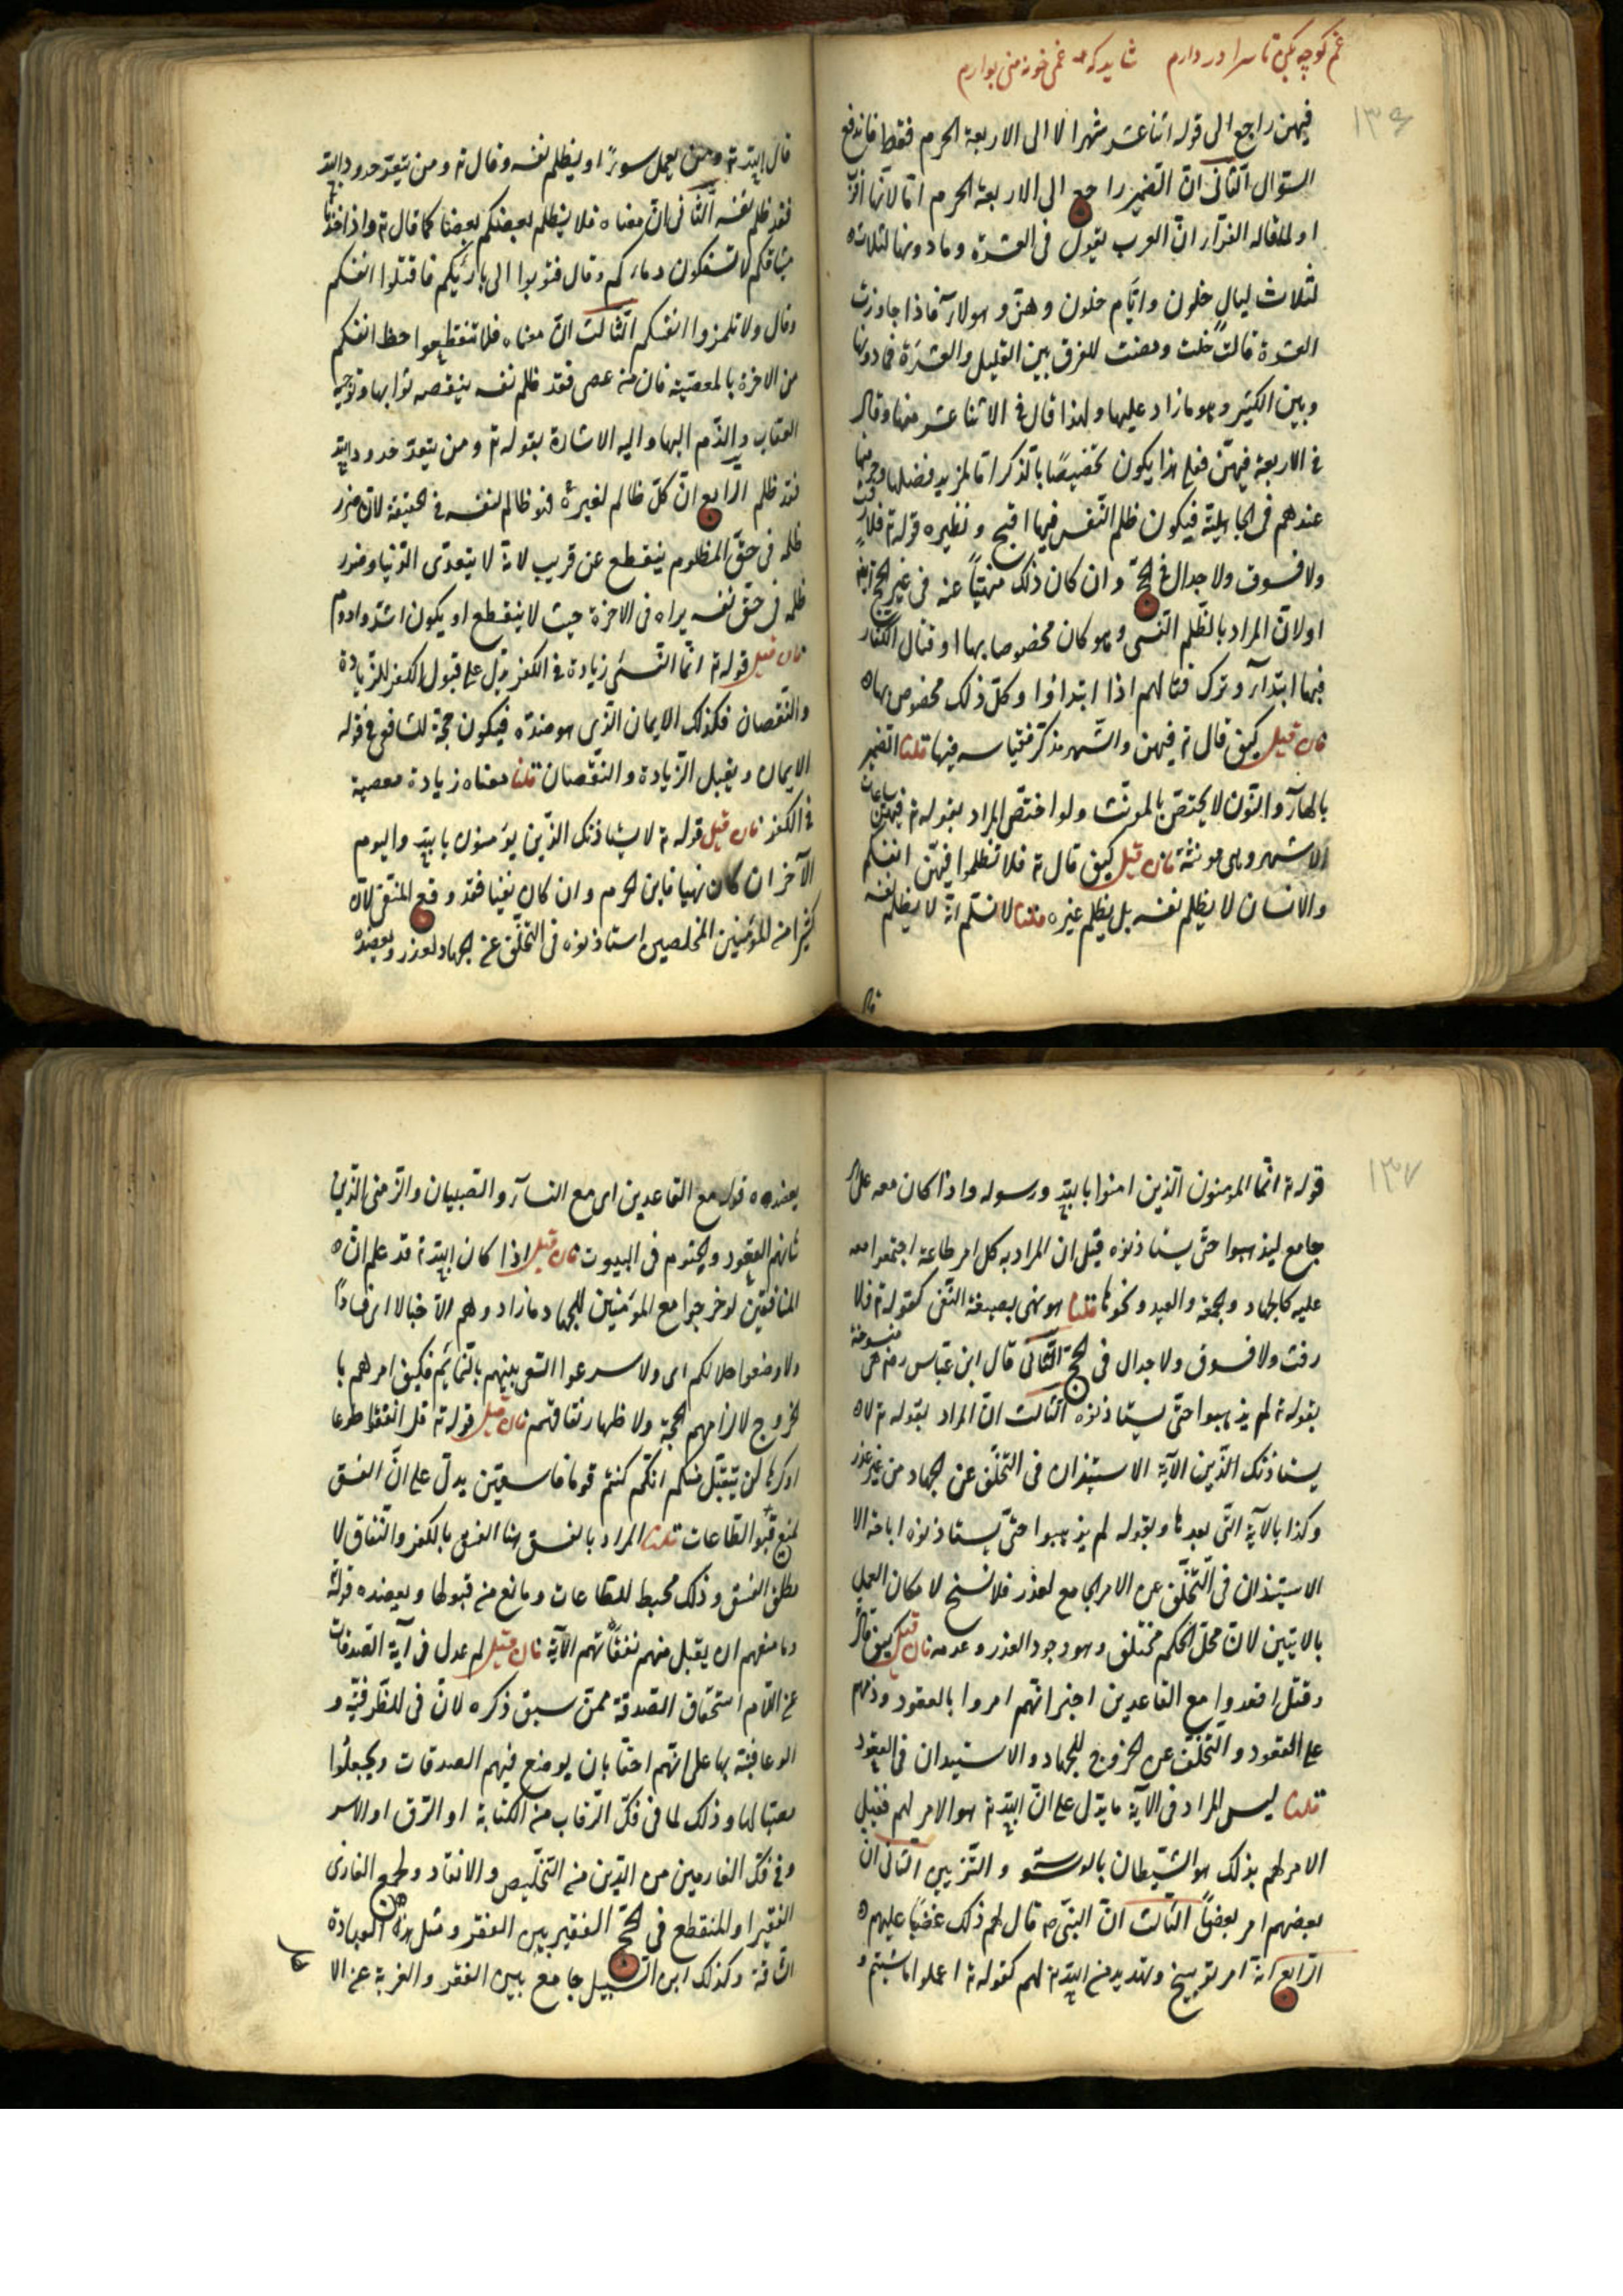 غم کوچه تا سرا در دارم شاید که غمی خود منی بوارم
۱۳۶
فیهن راجع الی قوله اثنا عشر شهرا لا الی الاربعة الحرم فقط فاندفع
السّؤال الثّانی انّ الضّمیر راجع الی الاربعة الحرم امّا لانّها اقرب
او لما قاله الفرّاء انّ العرب یقول فی العشرة وما دونها لثلاث
لثلاث لیال خلون وایّام خلون وهنّ وهولاء فاذا جاوزت
العشرة قالت خلت ومضت للفرق بین القلیل والعشرة فما دونها
وبین الکثیر وهو ما زاد علیها ولهذا قال فی الاثنا عشر منها وقال
فی الاربعة فیهنّ فعلی هذا یکون تخصیصًا بالذکر امّا لمزید فضلها وحرمتها
عندهم فی الجاهلیّة فیکون ظلم النّفس فیها اقبح ونظیره قوله تع فلا رفث
ولا فسوق ولا جدال فی الحجّ وان کان ذلک منهیّاً عنه فی غیر الحجّ ایضا
اولانّ المراد بالظّلم النّسی وهو کان مخصوصا بها او قتال الکفّار
فیها ابتداء وترک قتالهم اذا ابتداؤا وکلّ ذلک مخصوص بها
فان قیل کیف قال تع فیهن والشّهر مذکّر فقیاسه فیها قلنا الضّمیر
بالهاء والنّون لا یختصّ بالمؤنّث ولو اختصّ المراد بقوله تع فیهنّ ساعات
الاشهر وهی مونثة فان قیل کیف قال تع فلا تظلموا فیهنّ انفسکم
والانسان لا یظلم نفسه بل یظلم غیره قلنا لا نسلّم انّه لا یظلم نفسه
قال
قال الله تع ومن یعمل سوءًا او یظلم نفسه وقال تع ومن یتعدّ حدود الله
فقد ظلم نفسه الثّانی انّ معناه فلا یظلم بعضکم بعضا کما قال تع واذ اخذنا
میثاقکم لا تسفکون دماءکم وقال فتوبوا الی بارئکم فاقتلوا انفسکم
وقال ولا تلمزوا انفسکم الثّالث انّ معناه فلا تنقطعوا حظ انفسکم
من الاخرة بالمعصیة فان منه عصی فقد ظلم نفسه ینقصه ثوابها وتوجیه
العتاب والذّم الیها والیه الاشارة بقوله تع ومن یتعدّ حدود الله
فقد ظلم الرّابع انّ کلّ ظالم لغیره فهو ظالم لنفسه فی الحقیقة لانّ ضرر
ظلمه فی حقّ المظلوم ینقطع عن قریب لانّه لا یتعدّی الدّنیا وضرر
ظلمه فی حقّ نفسه یراه فی الاخرة حیث لا ینقطع او یکون اشدّ وادوم
فان قیل قوله تع انّما النّسیء زیادة فی الکفر یدلّ علی قبول الکفر للزّیادة
والنّقصان فکذلک الایمان الّذی هو ضدّه فیکون حجّة للشافعی فی قوله
الایمان ویقبل الزّیادة والنّقصان قلنا معناه زیادة معصیة
فی الکفر فان قیل قوله تع لا یستاذنک الّذین یؤمنون بالله والیوم
الآخر ان کان نهیا فاین الجزم وان کان نفیا فقد وقع المنفی لانّ
کثیرا منه المؤمنین المخلصین استاذنوه فی التّخلّف عن الجهاد لعذر ویعضده
۱۳۷
قوله تع انّما المؤمنون الّذین امنوا بالله ورسوله واذا کان معه علی امر
جامع لیذهبوا حتّی یستاذنوه قیل ان المراد به کل امر طاعة اجتمعوا معه
علیه کالجهاد والجمعة والعید ونحوها قلنا هو نهی بصیغة النّفی کقوله تع فلا
رفث ولا فسوق ولا جدال فی الحجّ الثّانی قال ابن عبّاس رض هی منسوخة
بقوله تع لم یذهبوا حتّی یستاذنوه الثّالث انّ المراد بقوله تع لا
یستاذنک الّذین الآیة الاستیذان فی التّخلّف عن الجهاد من غیر عذر
وکذا بالآیة الّتی بعدها وبقوله لم یذهبوا حتّی یستاذنوه اباحة الا
الاستیذان فی التّخلّف عن الامر الجامع لعذر فلا نسخ لامکان العمل
بالایتین لانّ محلّ الحکم مختلف وهو وجود العذر وعدمه فان قیل کیف قال
وقیل اقعدوا مع القاعدین اخبر انّهم امروا بالقعود وذمّهم
علی القعود والتّخلّف عن الخروج للجهاد والاستیدان فی القعود
قلنا لیس المراد فی الآیة ما یدّل علی انّ الله تع هو الامر لهم فقیل
الامر لهم بذلک هو الشّیطان بالوسوسة والتّزیین الثّانی انّ
بعضهم امر بعضًا الثّالث انّ النبیّ ص قال لهم ذلک غضبًا علیهم
الرّابع انّه امر توبیخ وتهدید من الله تع لهم کقوله تع اعملوا ما شئتم و
یعضده قوله مع القاعدین ای مع النّساء والصّبیان والزّمنی الّذین
شانهم القعود والجثوم فی البیوت فان قیل اذا کان الله تع قد علم انّ
المنافقین لو خرجوا مع المؤمنین للجهاد ما زادوهم الّا خبالا ای فسادًا
ولاوضعوا خلالکم ای ولاسرعوا السّعی بینهم بالنّمائم فکیف امرهم با
لخروج لالزامهم الحجّة ولاظهار نفاقهم فان قیل قوله تع قل انفقوا طوعا
او کرها لن یتقبّل منکم انّکم کنتم قوما فاسقین یدلّ علی انّ الفسق
یمنع قبول الطّاعات قلنا المراد بالفسق هنا الفسق بالکفر والنّفاق لا
مطلق الفسق وذلک محبط للطّاعات ومانع منه قبولها ویعضده قوله
وما منعهم ان یقبل منهم نفقاتهم الآیة فان قیل لم عدل فی آیة الصّدقات
عن اللّام استحقاق الصّدقة ممّن سبق ذکره لانّ فی للظّرفیّة و
الوعا فنبّه بها علی انّهم احقّا بان یوضع فیهم الصدقات ویجعلوا
مصبّا لها وذلک لما فی فکّ الرّقاب منه الکتابة او الرّق او الاسر
وفی فکّ الغارمین من الدّین منه التّخلیص والانقاد ولجمع الغازی
الفقیر او المنقطع فی الحجّ الفقیر بین الفقر ومثل هذه العبادة
الشّاقة وکذلک ابن السّبیل جامع بین الفقر والغربة عن الا